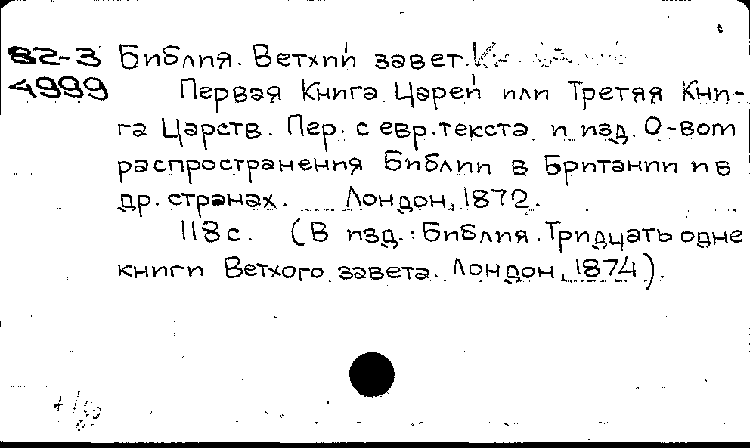 82-3 Библия. Ветхий завет.
4999 Первая Книга Царей или Третяя Кни-
га Царств. Пер. с евр. текста и изд. О-вом
распространения Библии в Британии и в
др. странах. Лондон, 1872.
118 с. (В изд.: Библия. Тридцать одне
книги Ветхого завета. Лондон, 1874).